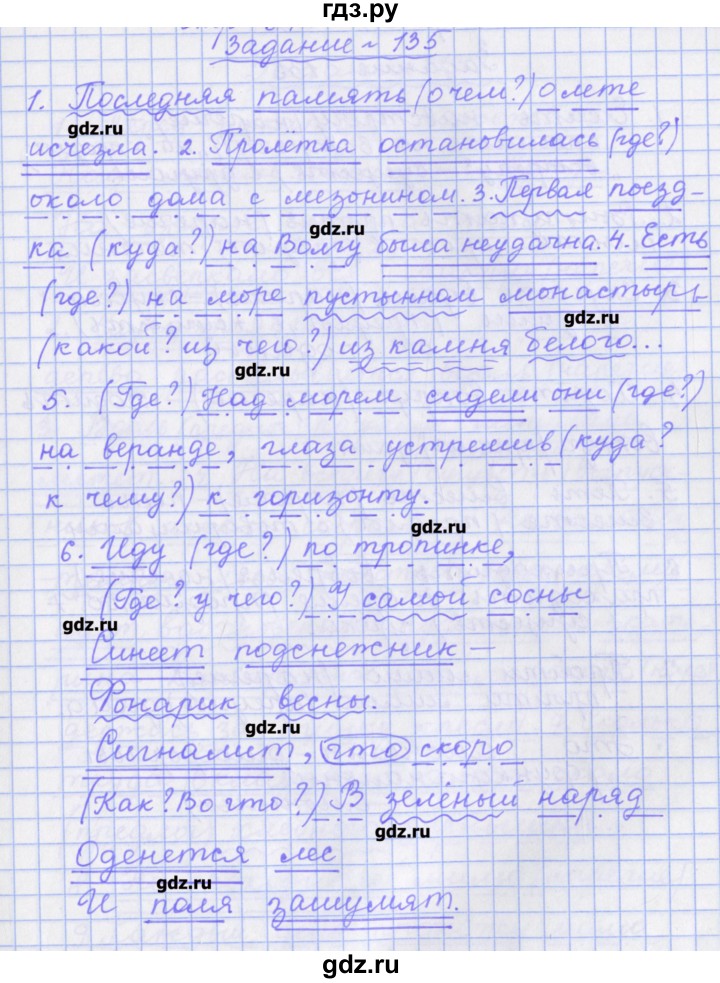 гдз.ру
Задание № 135
1. Последняя память (о чем?) о лете
gdz.ru
исчезла. 2. Пролётка остановилась (где?)
около дома с мезонином. 3. Первая поезд-
gdz.ru
ка (куда?) на Волгу была неудачна. 4. Есть
(где?) на море пустынном монастырь
gdz.ru
(какой? из чего?) из камня белого...
gdz.ru
5. (Где?) Над морем сидели они (где?)
на веранде, глаза устремив (куда?
к чему?) к горизонту.
gdz.ru
6. Иду (где?) по тропинке,
(Где? у чего?) У самой сосны
gdz.ru
Синеет подснежник –
Фонарик весны.
gdz.ru
Сигналит, что скоро
(Как? Во что?) В зелёный наряд
gdz.ru
Оденется лес
gdz.ru
И поля зашумят.
gdz.ru